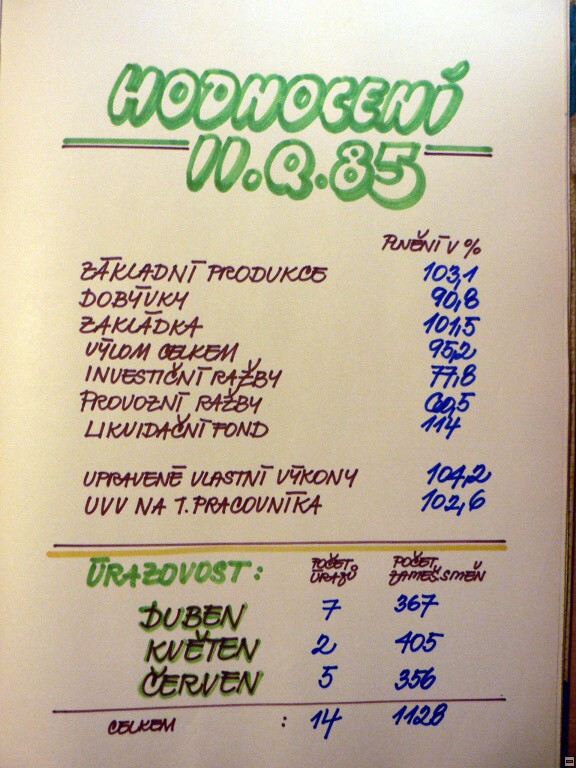 HODNOCENÍ
II.Q.85
PLNĚNÍ V %
ZÁKLADNÍ PRODUKCE 103,1
DOBÝVKY 90,8
ZAKLÁDKA 101,5
VÝLOM CELKEM 95,2
INVESTIČNÍ RAŽBY 77,8
PROVOZNÍ RAŽBY 60,5
LIKVIDAČNÍ FOND 114
UPRAVENÉ VLASTNÍ VÝKONY 104,2
UVV NA 1. PRACOVNÍKA 102,6
ÚRAZOVOST: POČET ÚRAZŮ POČET ZAMEŠ.SMĚN
DUBEN 7 367
KVĚTEN 2 405
ČERVEN 5 356
CELKEM : 14 1128